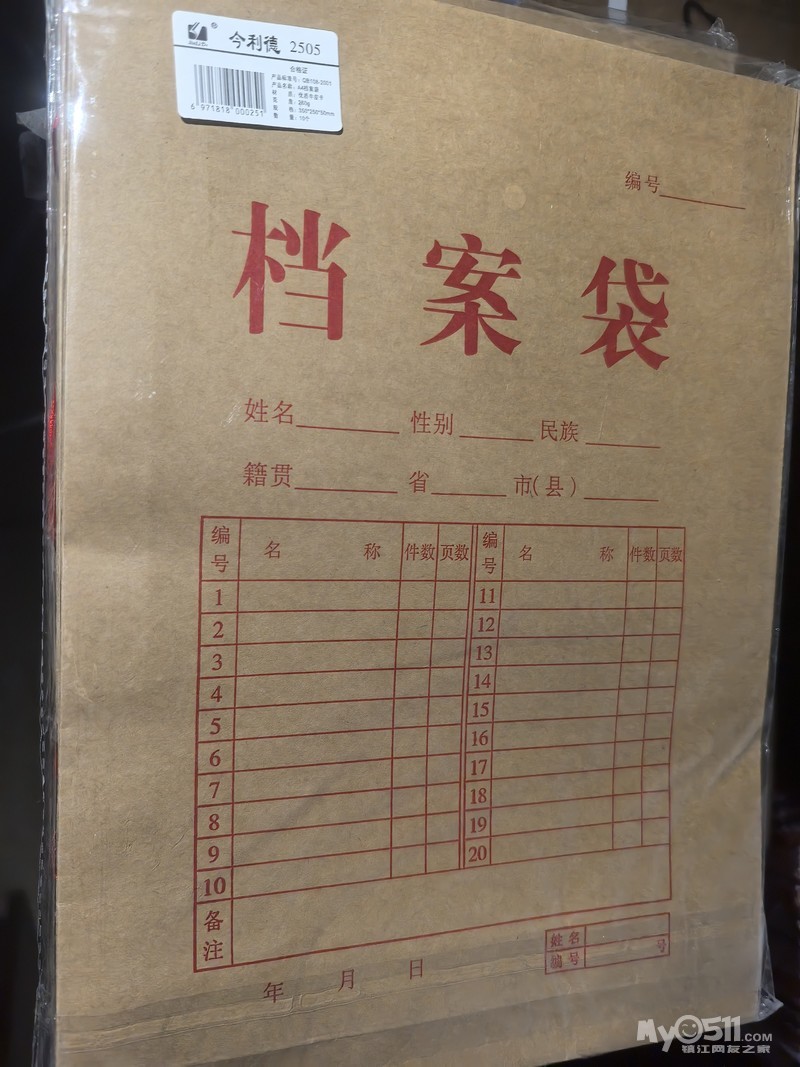 今利德 2505
合格证
产品标准号: QB108-2001
产品名称: A4档案袋
材 质: 优质牛皮卡
克 度: 260g
数 量: 10个
6 971818 000251
编号
档案袋
姓名 性别 民族
籍贯 省 市(县)
编号 名 称 件数 页数 编号 名 称 件数 页数
1 11
2 12
3 13
4 14
5 15
6 16
7 17
8 18
9 19
10 20
备注
姓名 号
编号
年 月 日
MyO511.COM
镇江网友之家